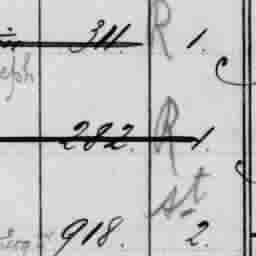 311. R 1.
eph
282. R 1.
St
918. 2.